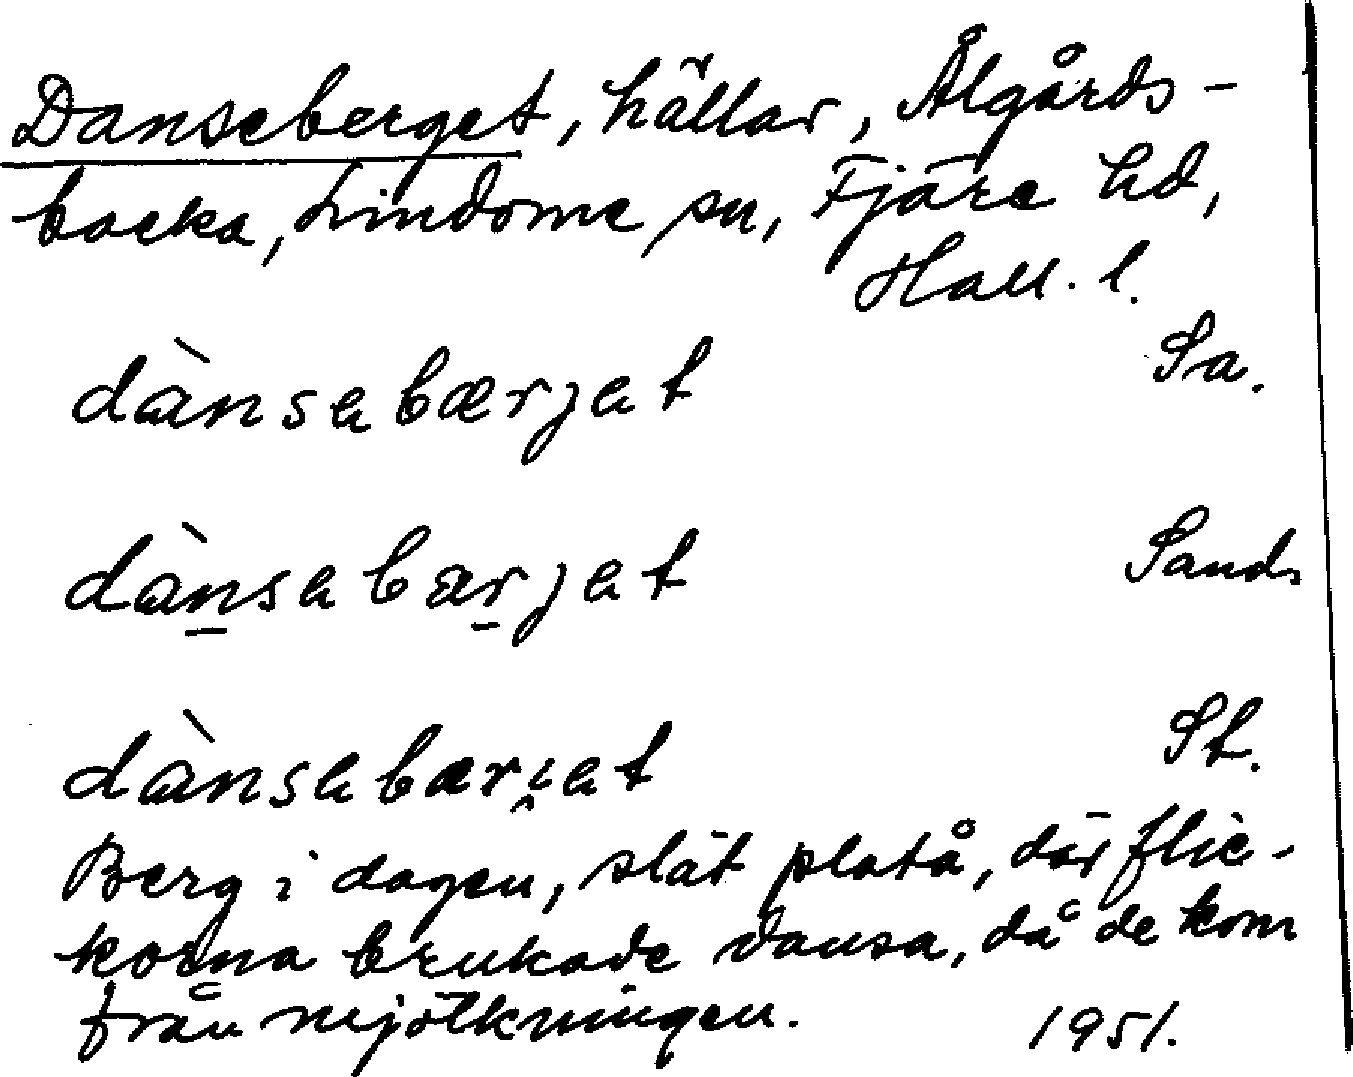 Danseberget, hällar, Ålgårds-
backa, Lindome sn, Fjäre hd,
Hall. l.
dànsabærjat Sa.
dànsabærjat Sands
dànsabæri̯at St.
Berg i dagen, slät platå, där flic-
korna brukade dansa, då de kom
från mjölkningen. 1951.